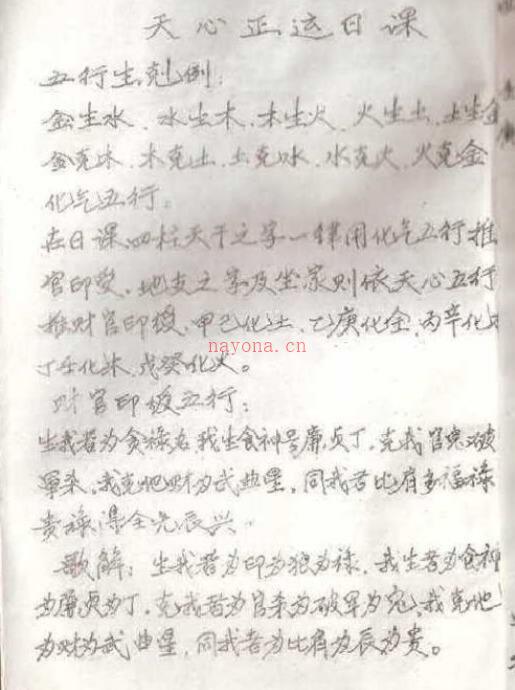 天心正运日课
五行生剋例:
金生水、水生木、木生火、火生土、土生金
金克木、木克土、土克水、水克火、火克金
化气五行。
在日课四柱天干之字一律用化气五行推
官印癹,地支之字及坐家则依天心五行
推财官印癹,甲己化土、乙庚化金、丙辛化水
丁壬化木、戊癸化火。
nayona.cn
财官印癹五行:
生我者为贪禄名我生食神号廉贞丁,克我官鬼破
军杀,我克他财为武曲星,同我者比肩多福禄
贵禄得全元辰兴.
歌解:生我者为印为禄,我生者为食神
为廉贞为丁,克我者为官杀为破军为鬼,我克他
为财为武曲星,同我者为比肩为辰为贵。